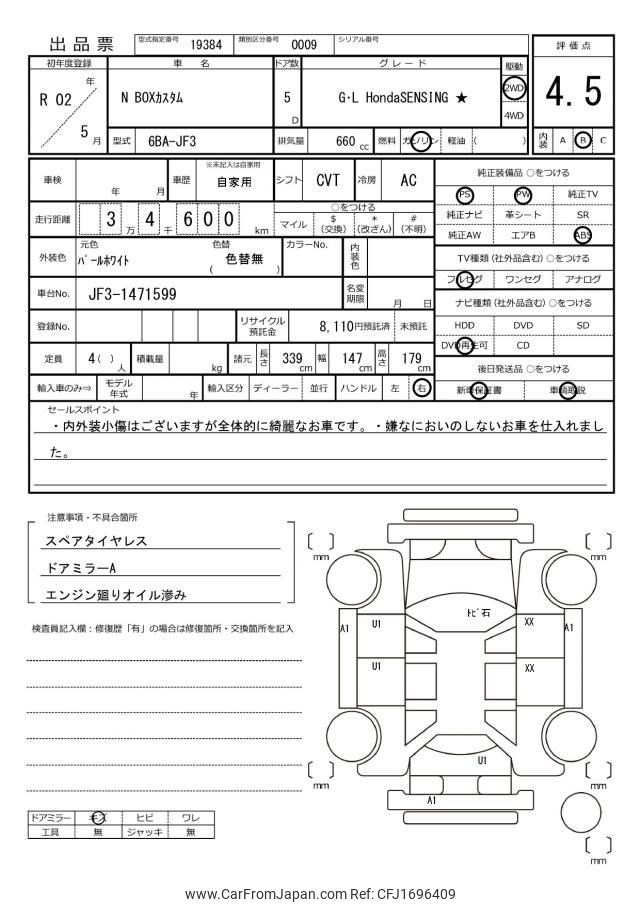 出品票
型式指定番号 19384 類別区分番号 0009 シリアル番号
評価点
4.5
初年度登録 車名 ドア数 グレード 駆動
R 02 年 5 月
N BOXカスタム 5 D G・L HondaSENSING ★ 2WD 4WD
型式 6BA-JF3 排気量 660 cc 燃料 ガソリン 軽油 ( )
内装 A B C
車検 年 月 車歴 ※未記入は自家用 自家用 シフト CVT 冷房 AC
走行距離 3 万 4 千 6 0 0 km
○をつける
マイル $(交換) *(改ざん) #(不明)
外装色 元色 パールホワイト 色替 ( 色替無 ) カラーNo. 内装色
車台No. JF3-1471599 名変期限 月 日
登録No. リサイクル預託金 8,110円預託済 未預託
定員 4( )人 積載量 kg 諸元 長さ 339cm 幅 147cm 高さ 179cm
輸入車のみ⇒ モデル年式 年 輸入区分 ディーラー 並行 ハンドル 左 右
純正装備品 ○をつける
PS PW 純正TV
純正ナビ 革シート SR
純正AW エアB ABS
TV種類(社外品含む)○をつける
フルセグ ワンセグ アナログ
ナビ種類(社外品含む)○をつける
HDD DVD SD
DVD再生可 CD
後日発送品 ○をつける
新車保証書 車輌取説
セールスポイント
・内外装小傷はございますが全体的に綺麗なお車です。・嫌なにおいのしないお車を仕入れまし
た。
注意事項・不具合箇所
スペアタイヤレス
ドアミラーA
エンジン廻りオイル滲み
検査員記入欄：修復歴「有」の場合は修復箇所・交換箇所を記入
ドアミラー キズ ヒビ ワレ
工具 無 ジャッキ 無
mm mm
トビ石
A1 U1 XX A1
U1 XX
U1
mm mm
A1
mm
www.CarFromJapan.com Ref: CFJ1696409